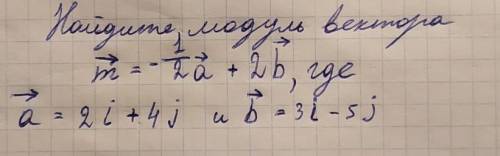 Найдите модуль вектора
m⃗ = -1/2 a⃗ + 2b⃗, где
a⃗ = 2i + 4j и b⃗ = 3i - 5j